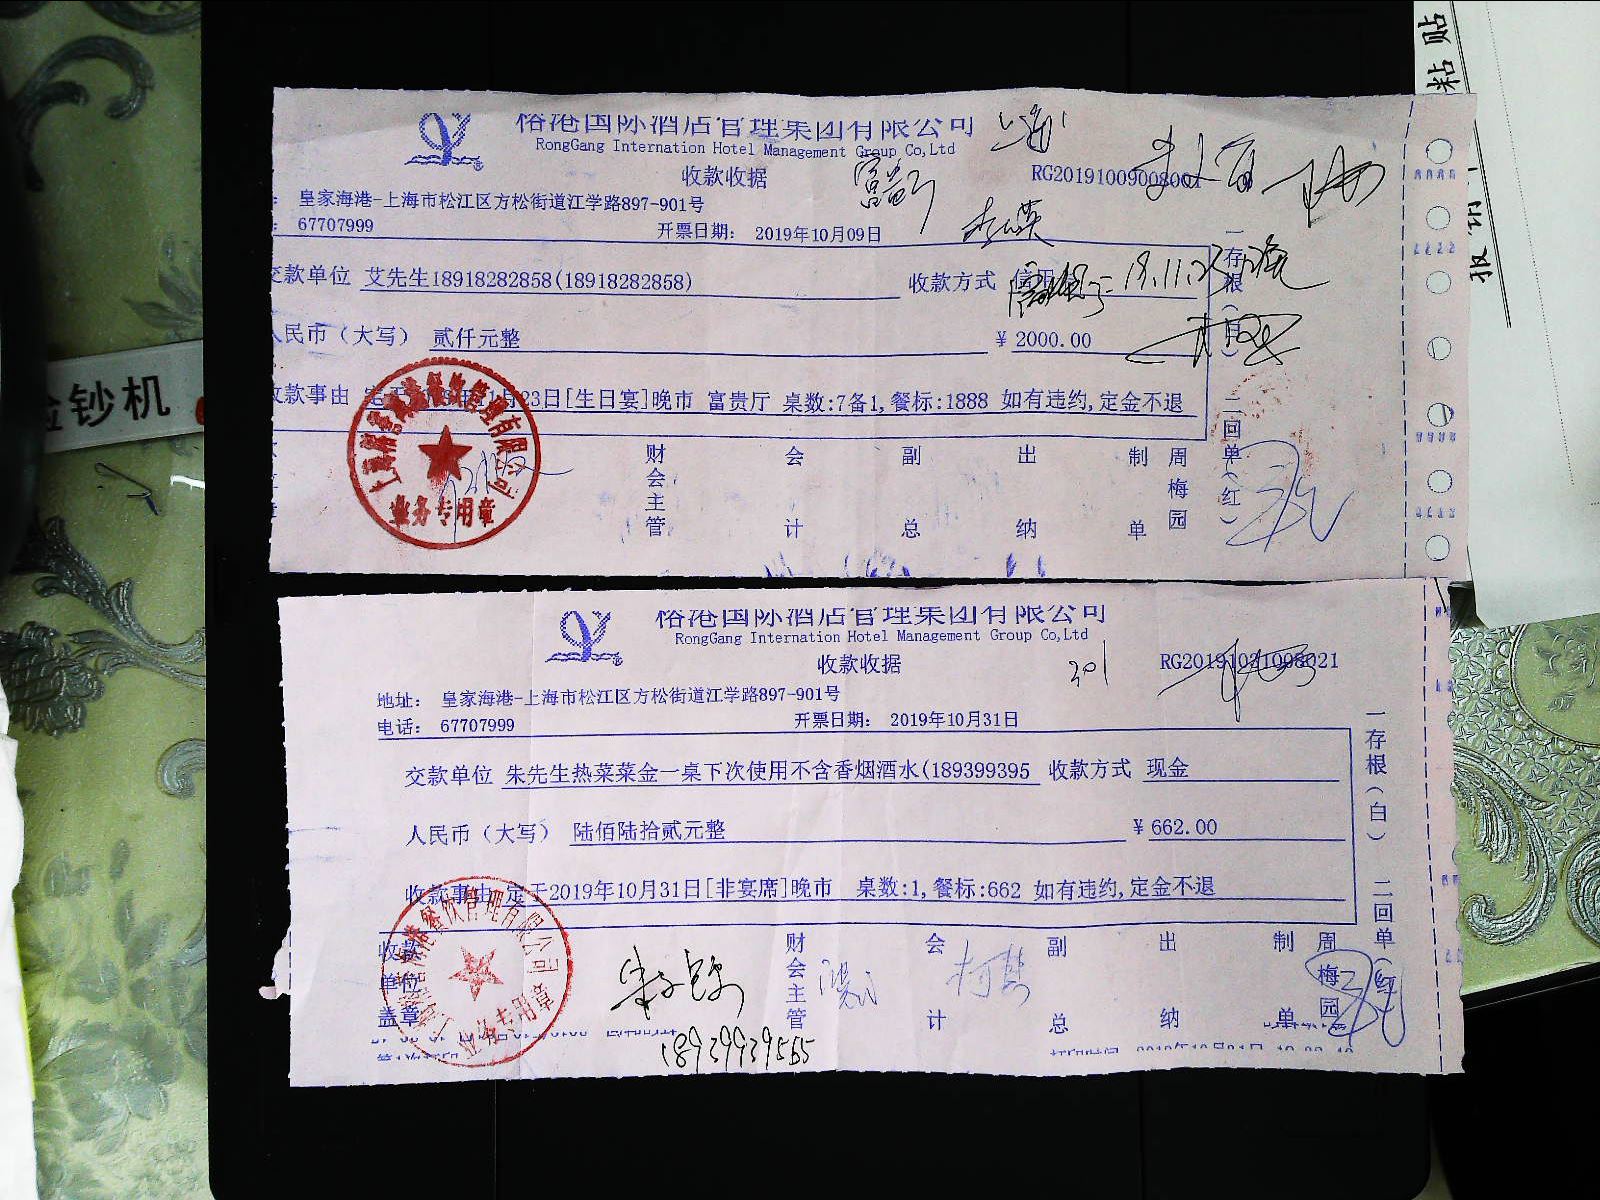 粘贴
报销
验钞机
榕港国际酒店管理集团有限公司
RongGang Internation Hotel Management Group Co,Ltd
收款收据
RG20191009008001
皇家海港-上海市松江区方松街道江学路897-901号
67707999 开票日期: 2019年10月09日
交款单位 艾先生18918282858(18918282858) 收款方式 信用
人民币（大写） 贰仟元整 ¥ 2000.00
收款事由 23日[生日宴]晚市 富贵厅 桌数:7备1,餐标:1888 如有违约,定金不退
财会主管 会计 副总 出纳 制单 周梅园
一存根（白） 二回单（红）
业务专用章
榕港国际酒店管理集团有限公司
RongGang Internation Hotel Management Group Co,Ltd
收款收据
201
RG20191031008021
地址: 皇家海港-上海市松江区方松街道江学路897-901号
电话: 67707999 开票日期: 2019年10月31日
交款单位 朱先生热菜菜金一桌下次使用不含香烟酒水(189399395 收款方式 现金
人民币（大写） 陆佰陆拾贰元整 ¥ 662.00
收款事由 定于2019年10月31日[非宴席]晚市 桌数:1,餐标:662 如有违约,定金不退
收款单位盖章 财会主管 会计 副总 出纳 制单 周梅园
一存根（白） 二回单（红）
业务专用章
18939939565